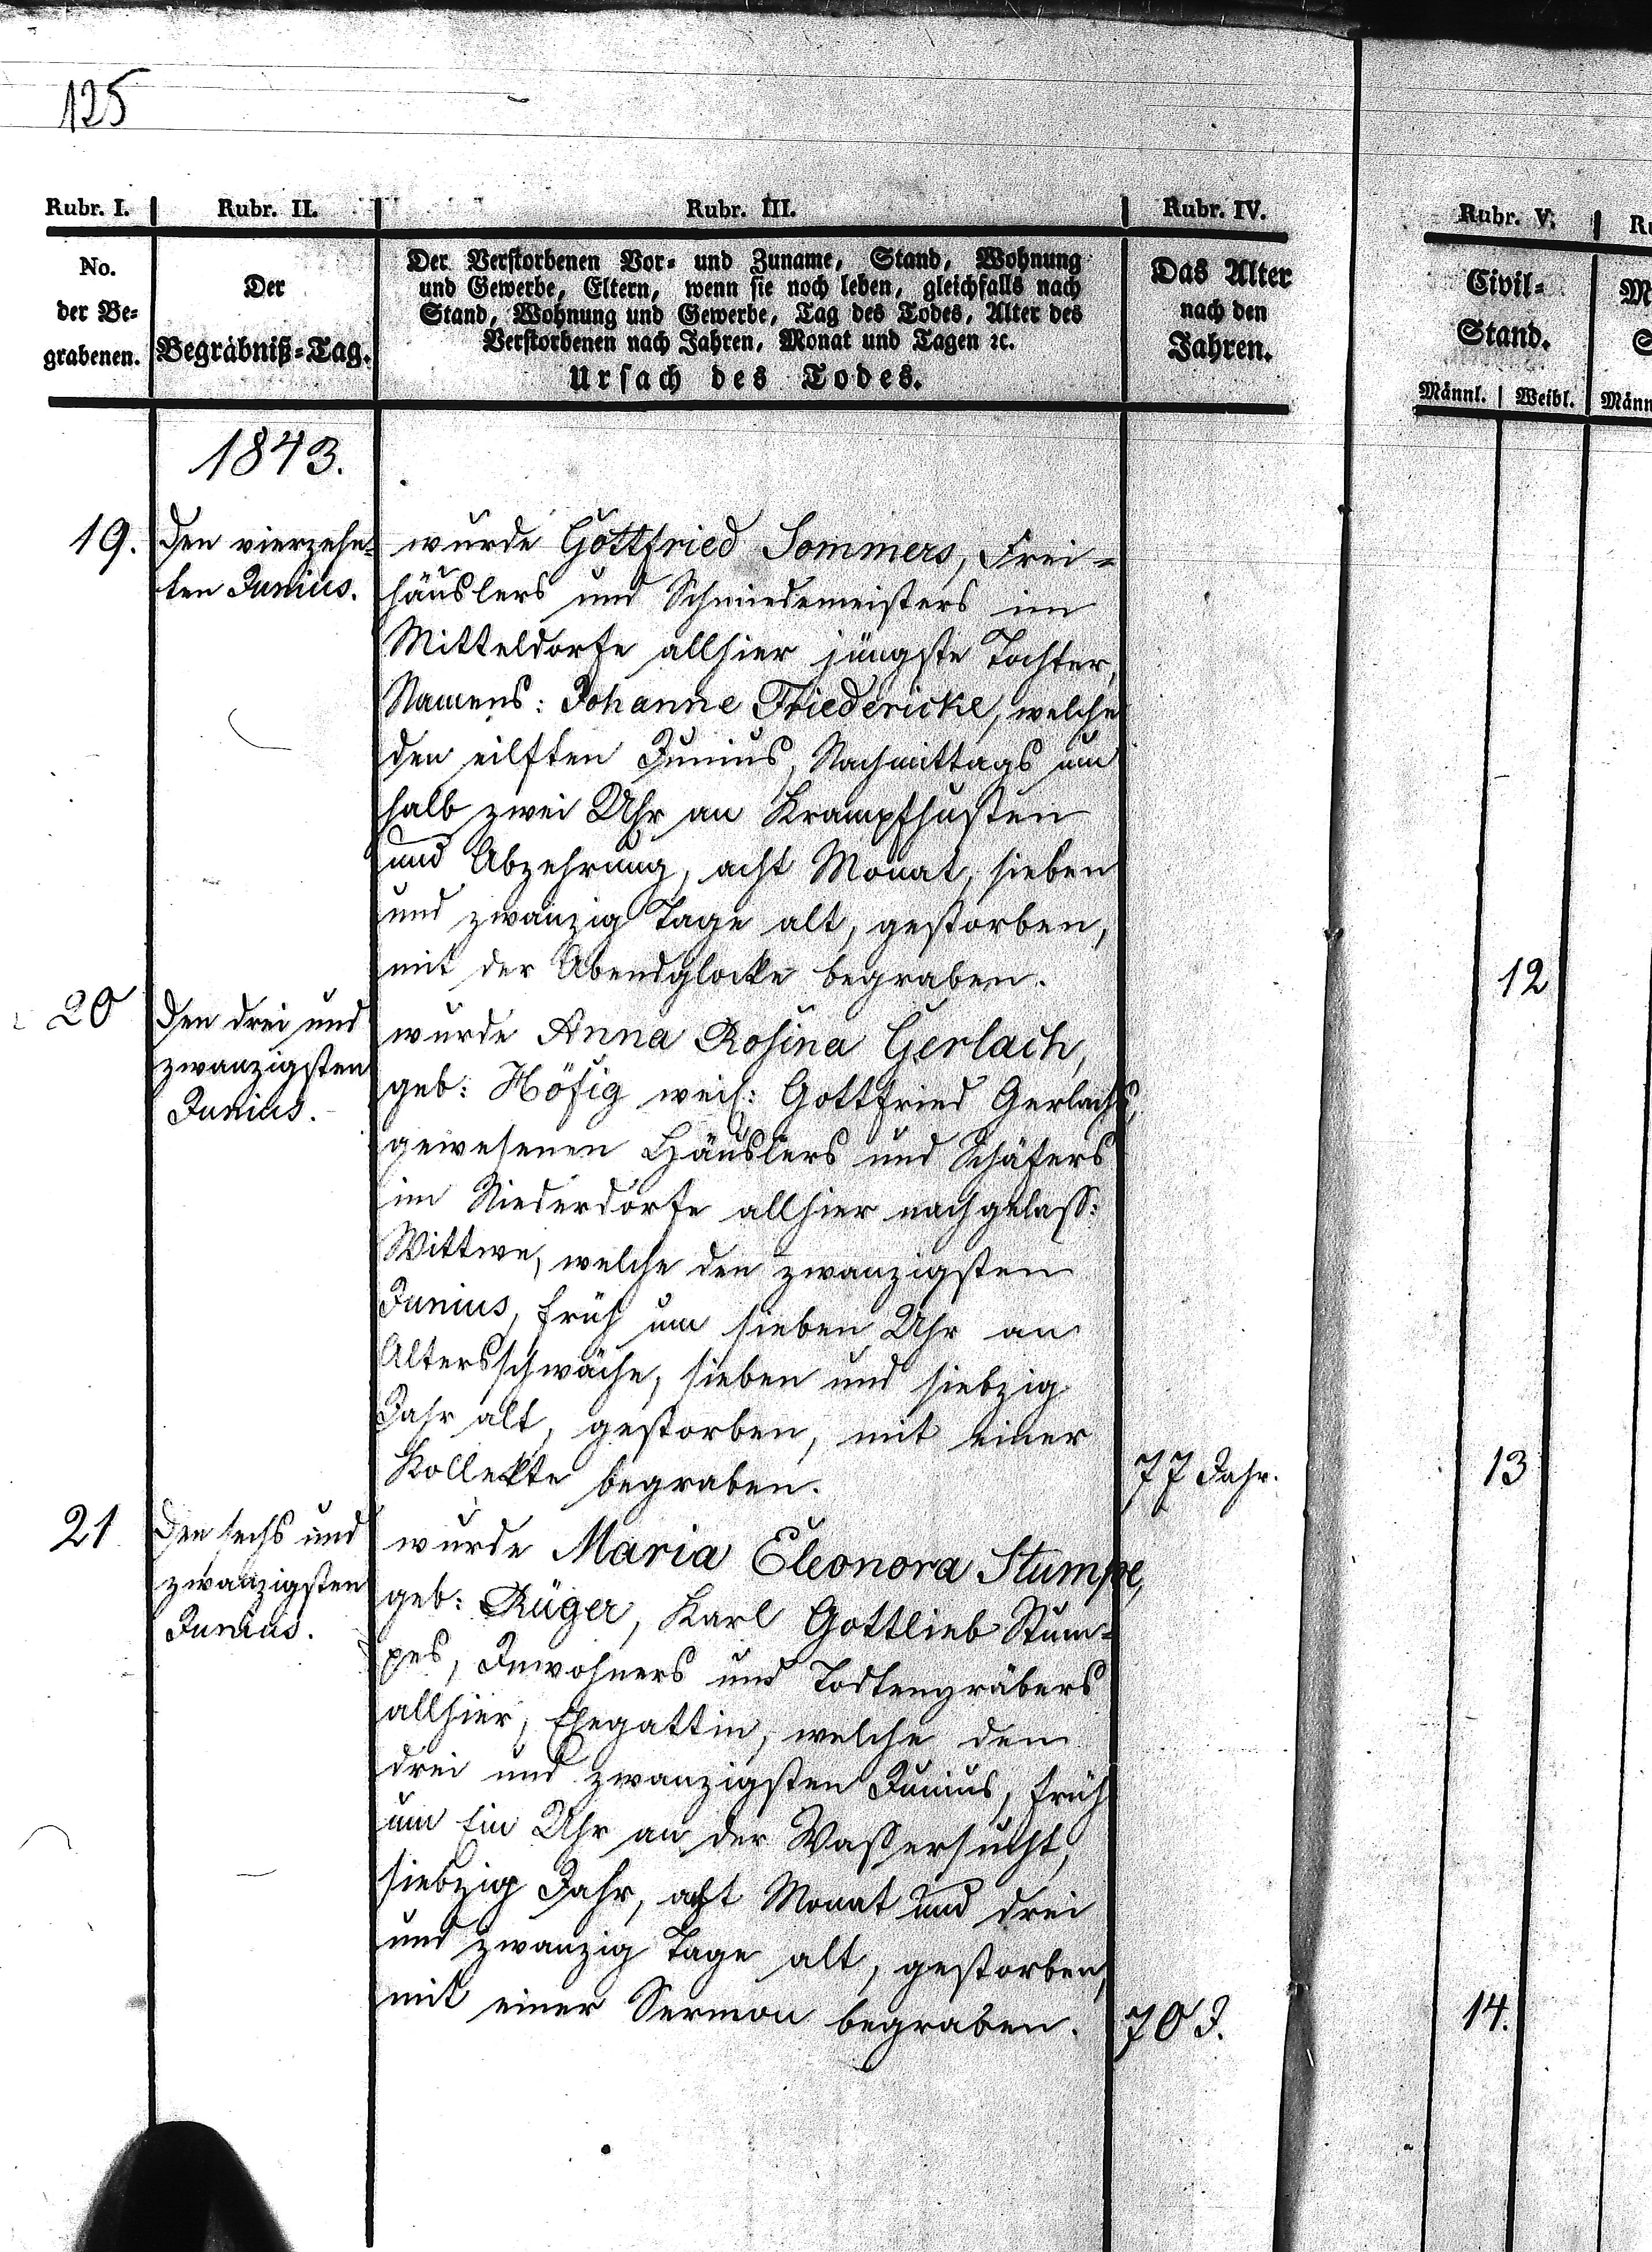 125
Rubr. I.
Rubr. II.
Rubr. III.
Rubr. IV.
Rubr. V.
No.
der Be-
grabenen.
Der
Begräbniß-Tag.
Der Verstorbenen Vor- und Zuname, Stand, Wohnung
und Gewerbe, Eltern, wenn sie noch leben, gleichfalls nach
Stand, Wohnung und Gewerbe, Tag des Todes, Alter des
Verstorbenen nach Jahren, Monat und Tagen ꝛc.
Ursach des Todes.
Das Alter
nach den
Jahren.
Civil-
Stand.
Männl.
Weibl.
1843.
19.
Den vierzehn-
ten Junius.
wurde Gottfried Sommers, Frei-
häuslers und Schmiedemeisters im
Mitteldorfe allhier jüngste Tochter,
Namens: Johanne Friedericke, welche
den eilften Junius, Nachmittags um
halb zwei Uhr an Krampfhusten
und Abzehrung, acht Monat, sieben
und zwanzig Tage alt, gestorben,
mit der Abendglocke begraben.
12
20
Den drei und
zwanzigsten
Junius.
wurde Anna Rosina Gerlach,
geb: Höfig weil: Gottfried Gerlachs,
gewesenen Häuslers und Schäfers
im Niederdorfe allhier nachgelass:
Wittwe, welche den zwanzigsten
Junius, früh um sieben Uhr an
Altersschwäche, sieben und siebzig
Jahr alt, gestorben, mit einer
Kollekte begraben.
77 Jahr.
13
21
Den sechs und
zwanzigsten
Junius.
wurde Maria Eleonora Stumpe,
geb: Rüger, Karl Gottlieb Stum-
pes, Inwohners und Todtengräbers
allhier, Ehegattin, welche den
drei und zwanzigsten Junius, früh
um Ein Uhr an der Wassersucht,
siebzig Jahr, acht Monat und drei
und zwanzig Tage alt, gestorben,
mit einer Sermon begraben.
70 J.
14.